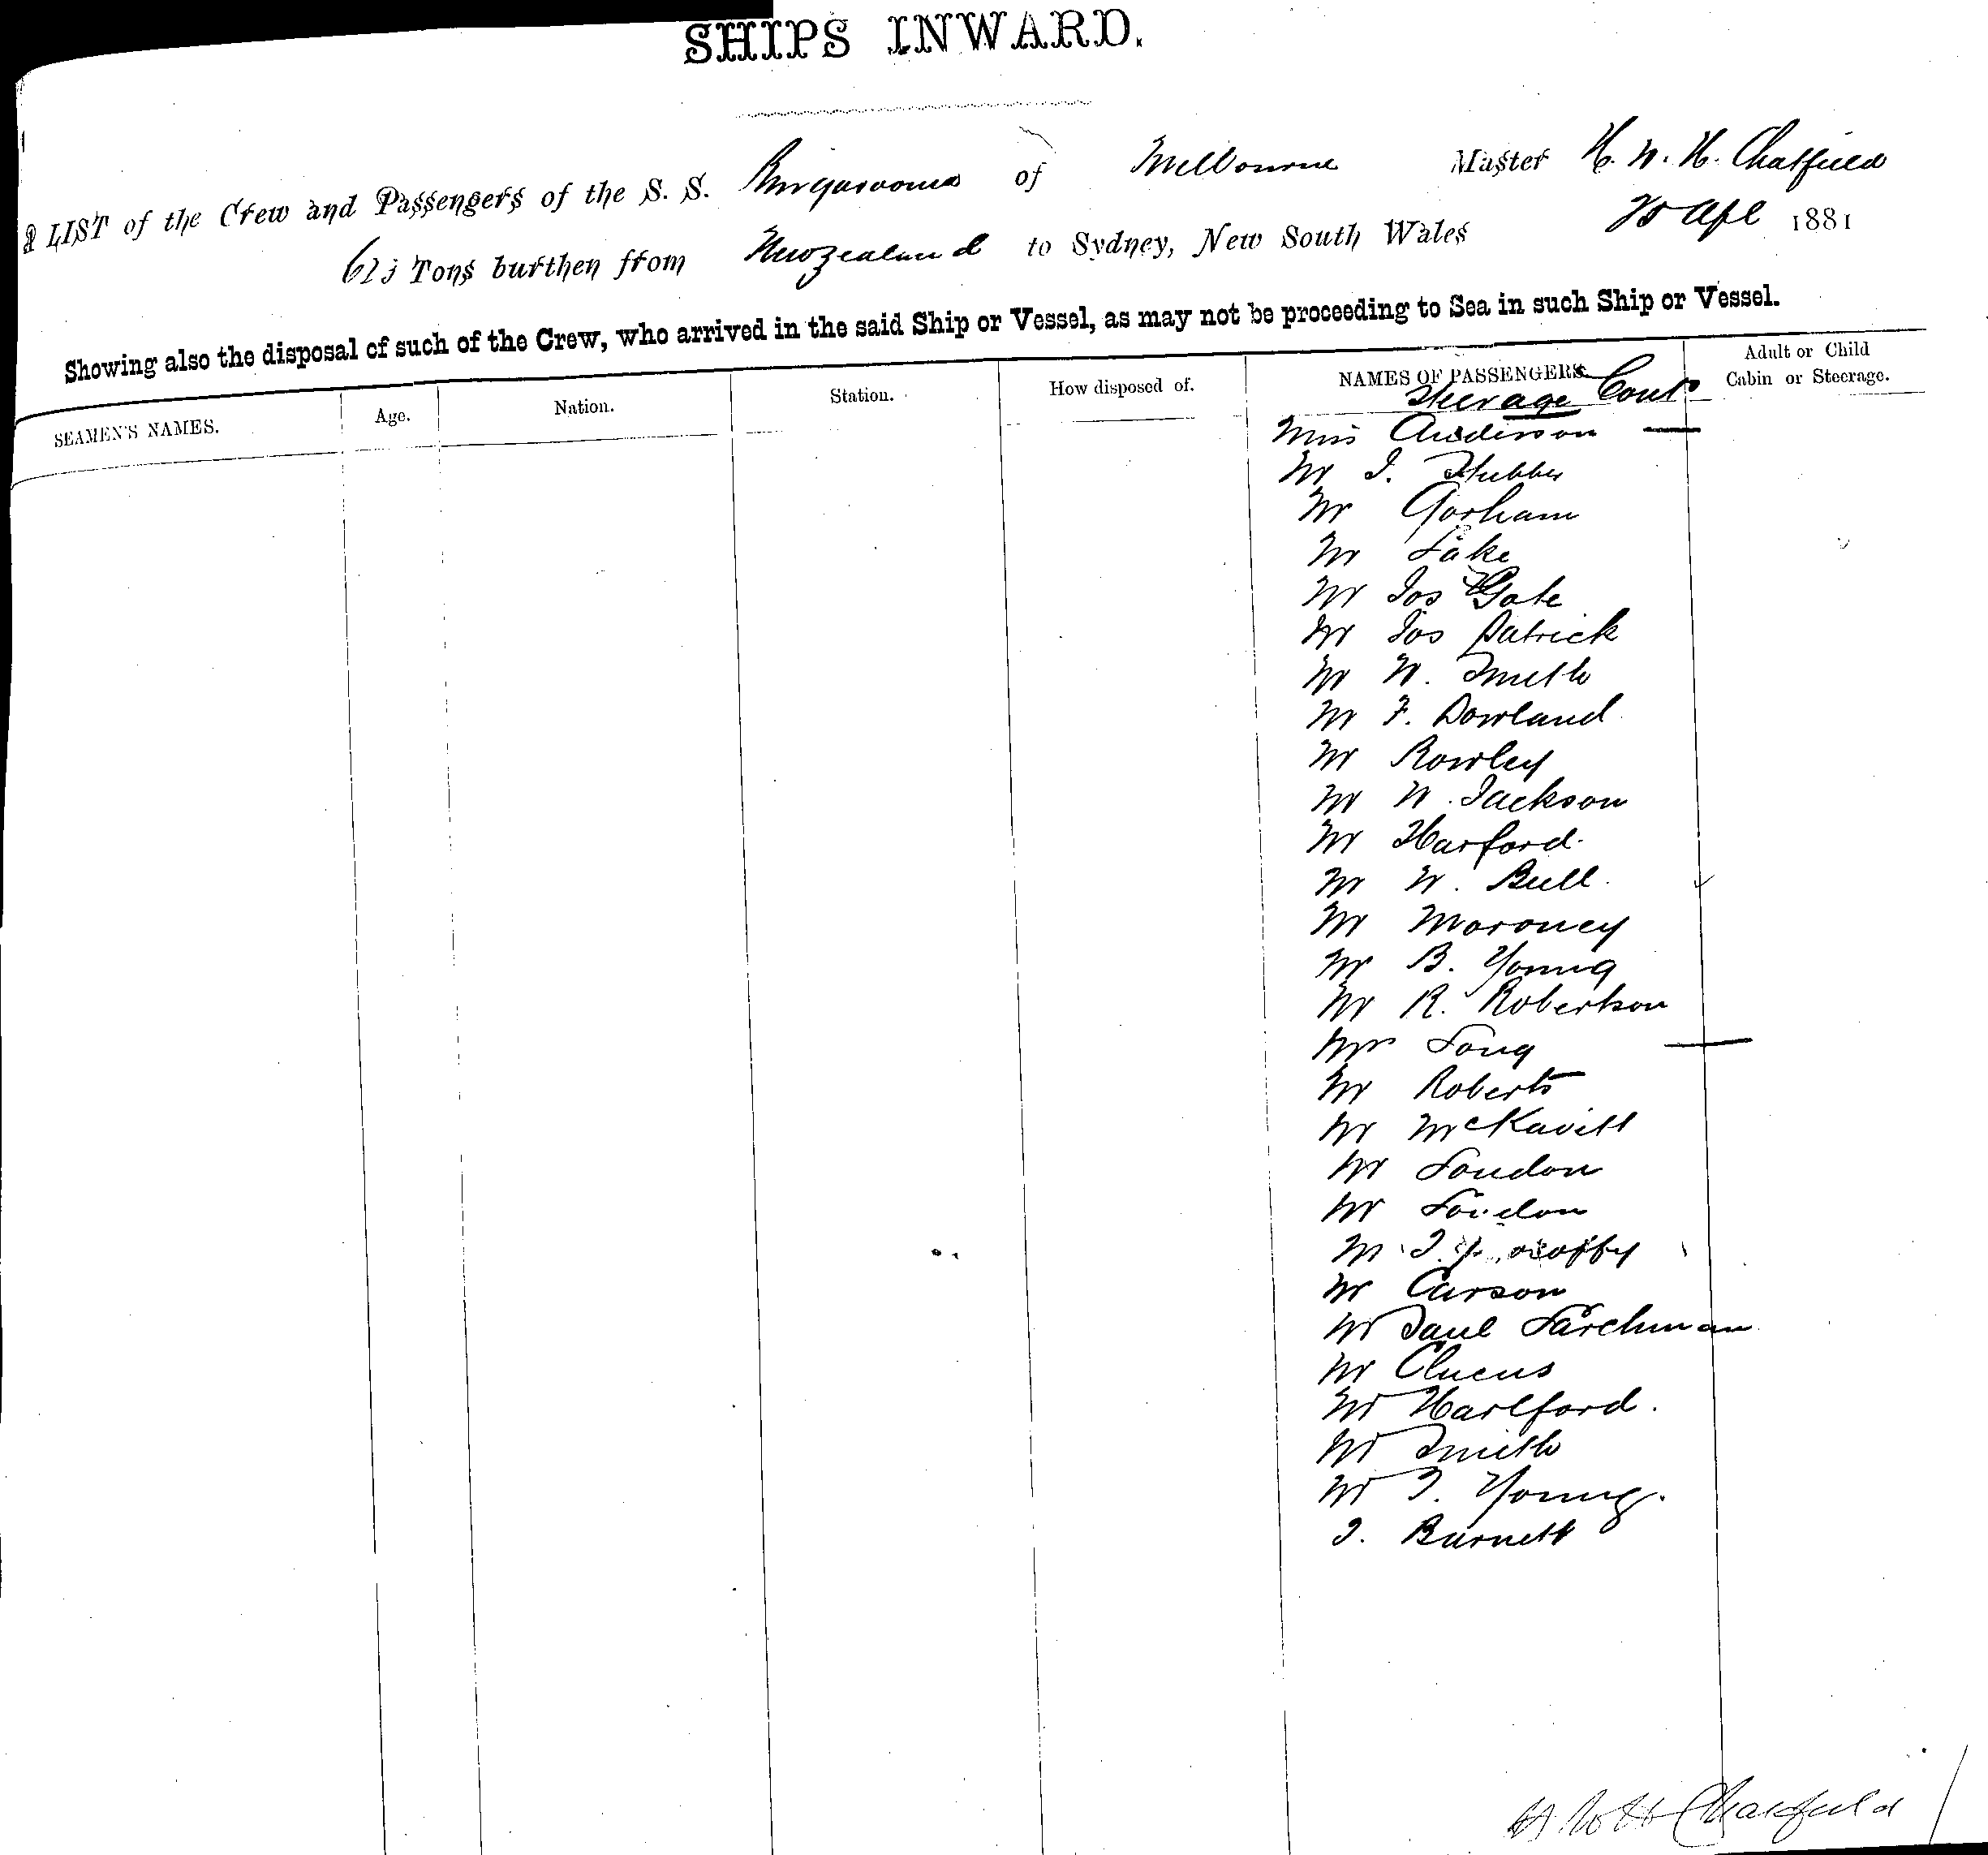 SHIPS INWARD.
A LIST of the Crew and Passengers of the S. S. Ringarooma of Melbourne Master H. W. H. Chatfield
623 Tons burthen from New Zealand to Sydney, New South Wales 25 Apl 1881
Showing also the disposal of such of the Crew, who arrived in the said Ship or Vessel, as may not be proceeding to Sea in such Ship or Vessel.
SEAMEN'S NAMES. Age. Nation. Station. How disposed of. NAMES OF PASSENGERS. Adult or Child Cabin or Steerage.
Steerage Cont
Miss Anderson
Mr J. Stubbs
Mr Gorham
Mr Lake
Mr Jos Gate
Mr Jos Patrick
Mr W. Smith
Mr F. Dowland
Mr Rowley
Mr W. Jackson
Mr Harford
Mr W. Bull
Mr Moroney
Mr B. Young
Mr R. Robertson
Mrs Long
Mr Roberts
Mr McKavitt
Mr Loudon
Mr Loudon
Mr J.
Mr Carson
Mr Paul Larchman
Mr Clucus
Mr Harlford.
Mr Smith
Mr J. Young.
J. Burnett
H W H Chatfield